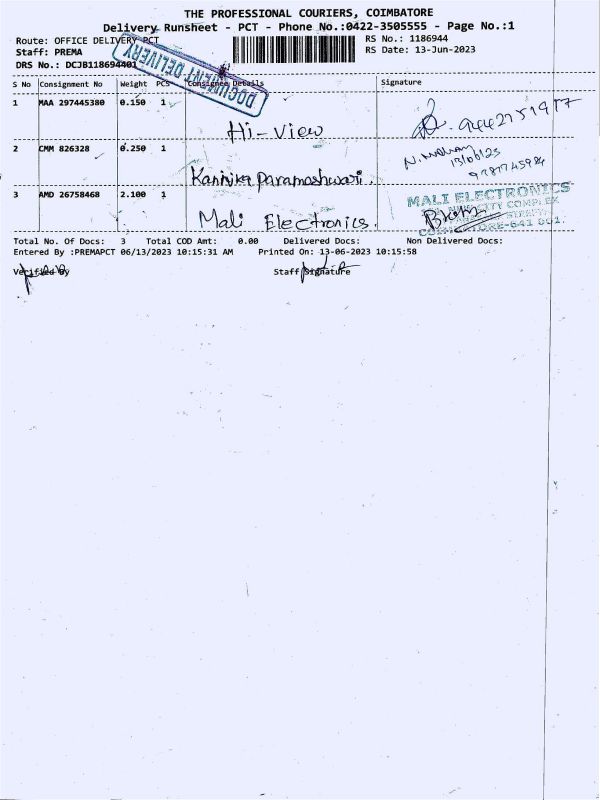 THE PROFESSIONAL COURIERS, COIMBATORE
Delivery Runsheet - PCT - Phone No.:0422-3505555 - Page No.:1
Route: OFFICE DELIVERY PCT
RS No.: 1186944
Staff: PREMA
RS Date: 13-Jun-2023
DRS No.: DCJB118694401
DOCUMENT DELIVERY
S No Consignment No Weight PCS Consignee Details Signature
1 MAA 297445380 0.150 1
Hi-View
2 CMM 826328 0.250 1
13/06/23
Kannika Parameshwari.
3 AMD 26758468 2.100 1
MALI ELECTRONICS
COMPLEX
STREET,
641 001.
Mali Electronics.
Total No. Of Docs: 3 Total COD Amt: 0.00 Delivered Docs: Non Delivered Docs:
Entered By :PREMAPCT 06/13/2023 10:15:31 AM Printed On: 13-06-2023 10:15:58
Verified By Staff Signature